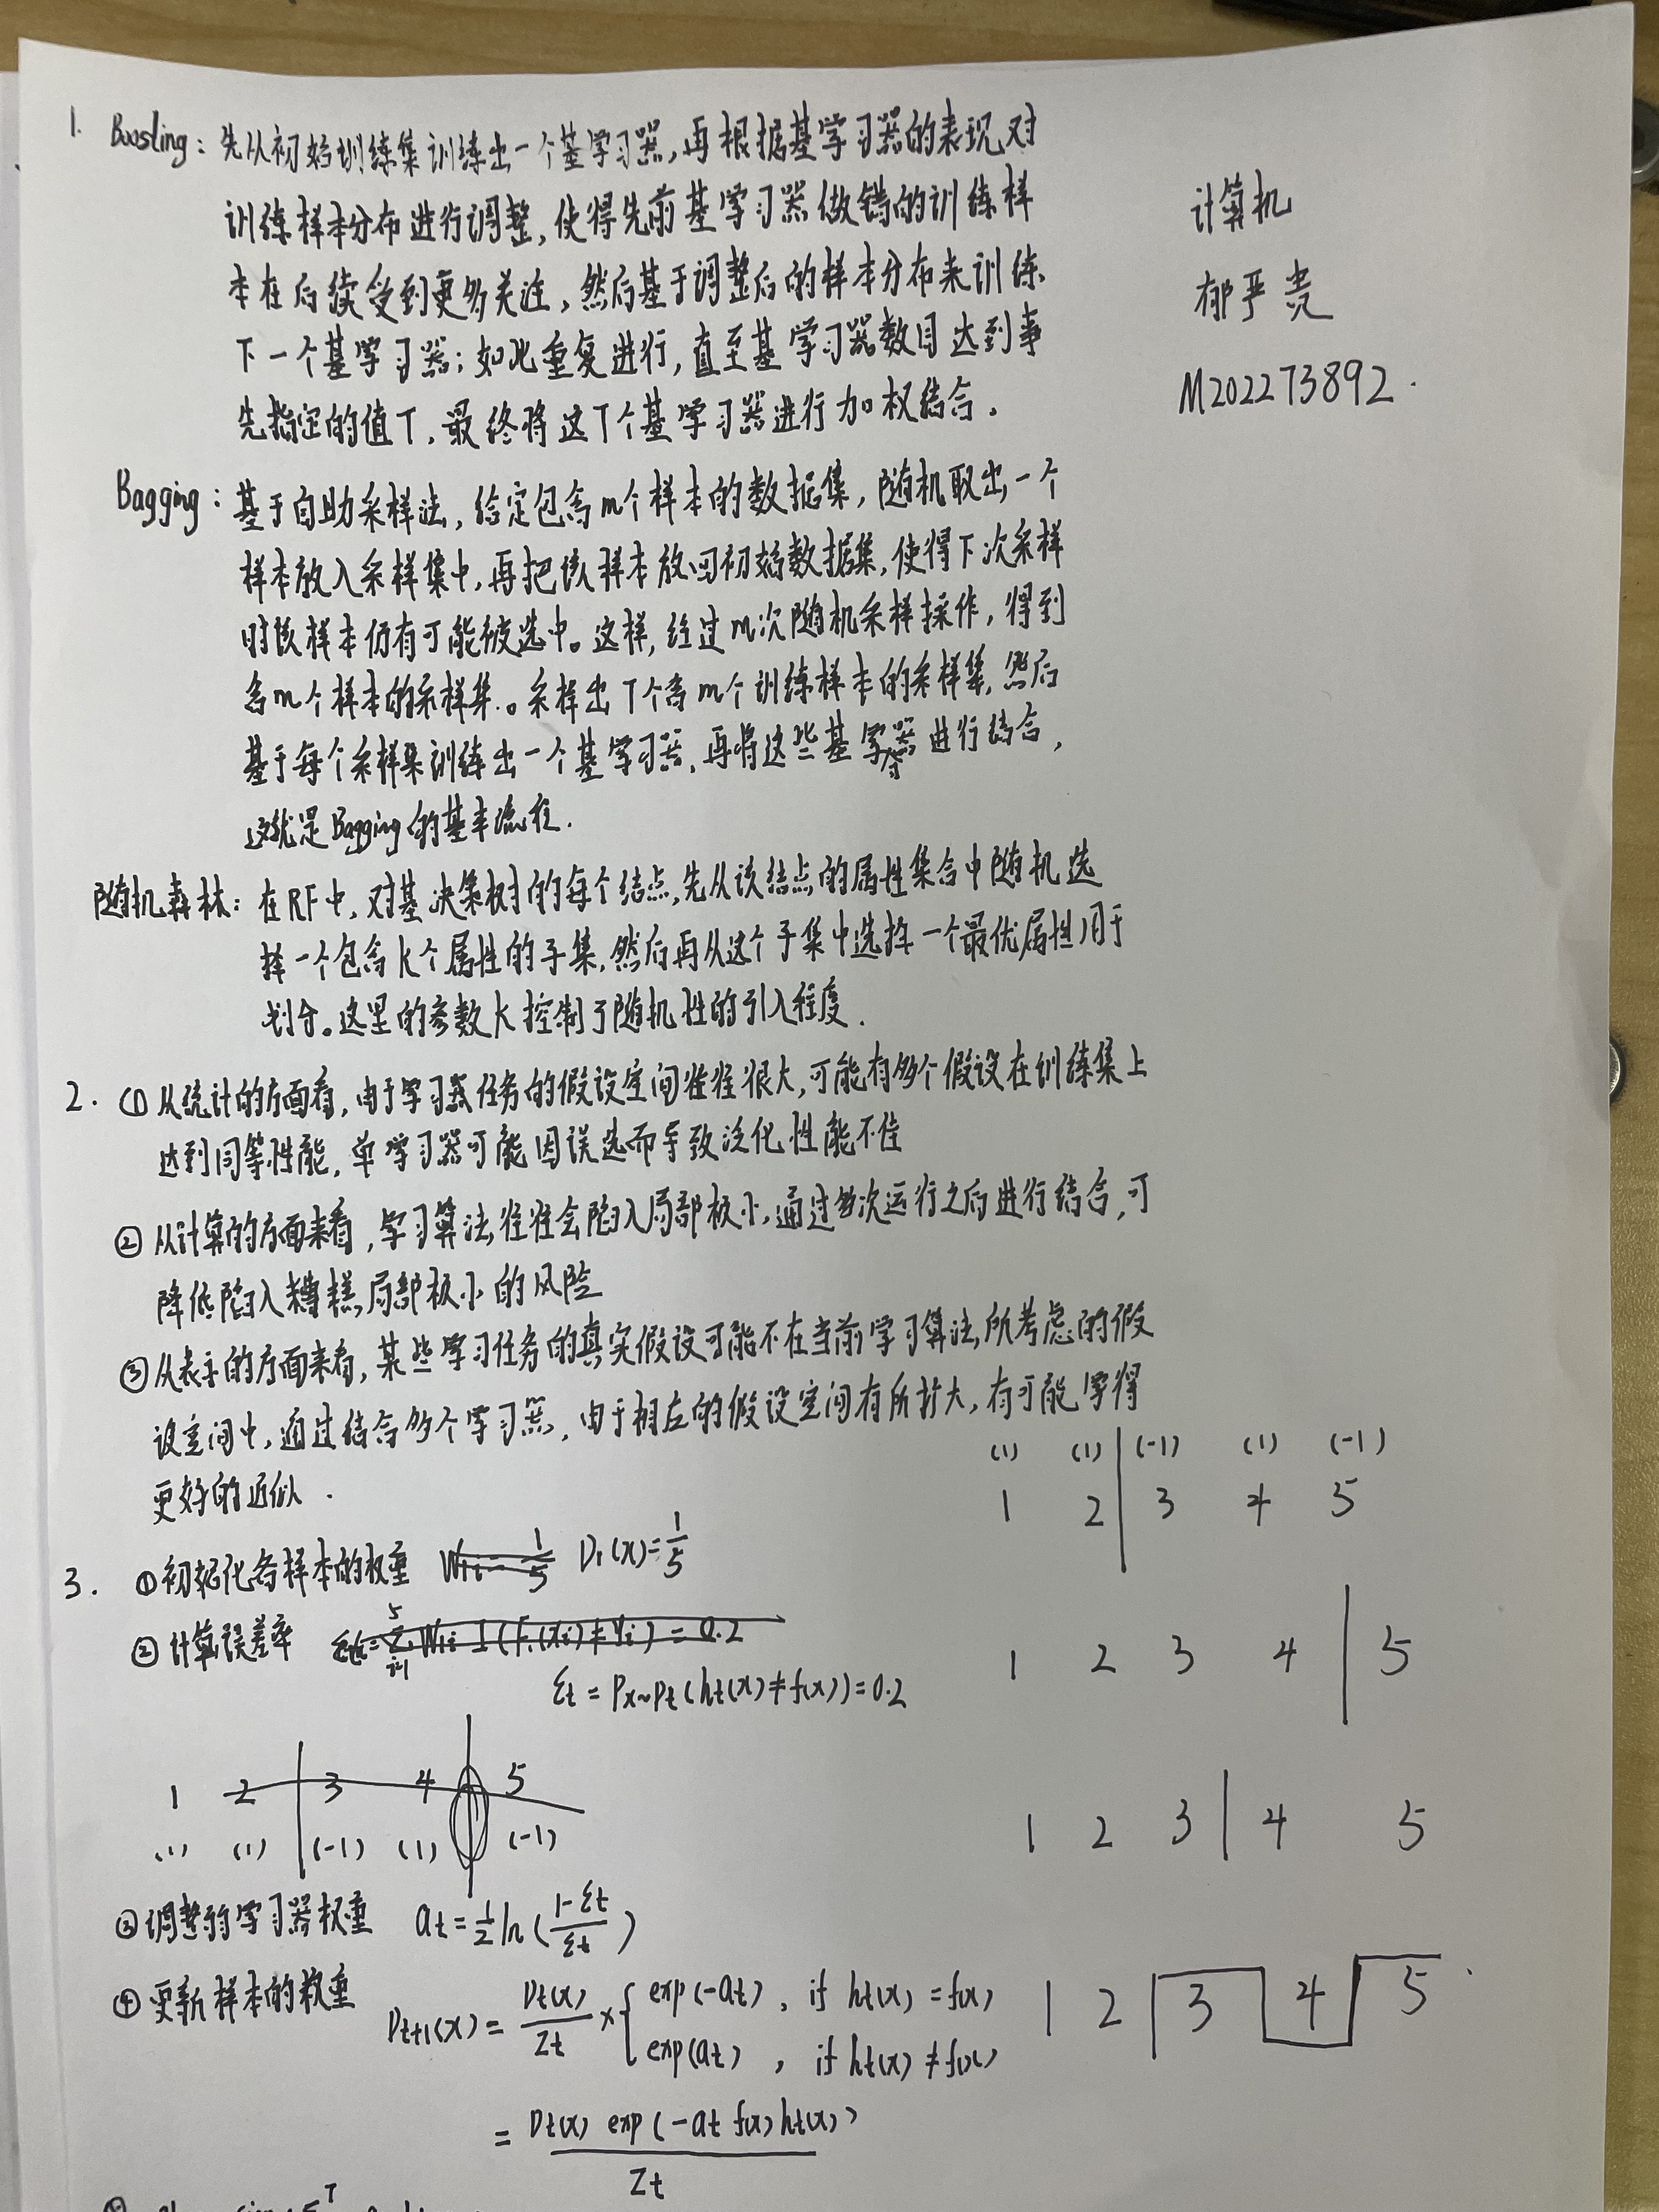 1. Boosting：先从初始训练集训练出一个基学习器，再根据基学习器的表现对
训练样本分布进行调整，使得先前基学习器做错的训练样
本在后续受到更多关注，然后基于调整后的样本分布来训练
下一个基学习器；如此重复进行，直至基学习器数目达到事
先指定的值T，最终将这T个基学习器进行加权结合。
计算机
郁严贵
M202273892.
Bagging：基于自助采样法，给定包含m个样本的数据集，随机取出一个
样本放入采样集中，再把该样本放回初始数据集，使得下次采样
时该样本仍有可能被选中。这样，经过m次随机采样操作，得到
含m个样本的采样集。采样出T个含m个训练样本的采样集，然后
基于每个采样集训练出一个基学习器，再将这些基学习器进行结合，
这就是Bagging的基本流程.
随机森林：在RF中，对基决策树的每个结点，先从该结点的属性集合中随机选
择一个包含k个属性的子集，然后再从这个子集中选择一个最优属性用于
划分。这里的参数k控制了随机性的引入程度.
2. ①从统计的方面看，由于学习器任务的假设空间往往很大，可能有多个假设在训练集上
达到同等性能，单学习器可能因误选而导致泛化性能不佳
②从计算的方面来看，学习算法往往会陷入局部极小，通过多次运行之后进行结合，可
降低陷入糟糕局部极小的风险
③从表示的方面来看，某些学习任务的真实假设可能不在当前学习算法所考虑的假
设空间中，通过结合多个学习器，由于相应的假设空间有所扩大，有可能学得
更好的近似.
(1) (1) (-1) (1) (-1)
1 2 3 4 5
3. ①初始化各样本的权重 W₁ᵢ=1/5 D₁(x)=1/5
②计算误差率 = Σ W₁ᵢ I(F₁(xᵢ)≠yᵢ)=0.2
εt = Px~Dt(ht(x)≠f(x))=0.2
1 2 3 4 5
1 2 3 4 5
(1) (1) (-1) (1) (-1)
1 2 3 4 5
③调整的学习器权重 at=1/2 ln((1-εt)/εt)
④更新样本的权重 Dt+1(x)= Dt(x)/Zt × { exp(-at), if ht(x)=f(x)
exp(at), if ht(x)≠f(x)
1 2 3 4 5
= Dt(x) exp(-at f(x) ht(x)) / Zt